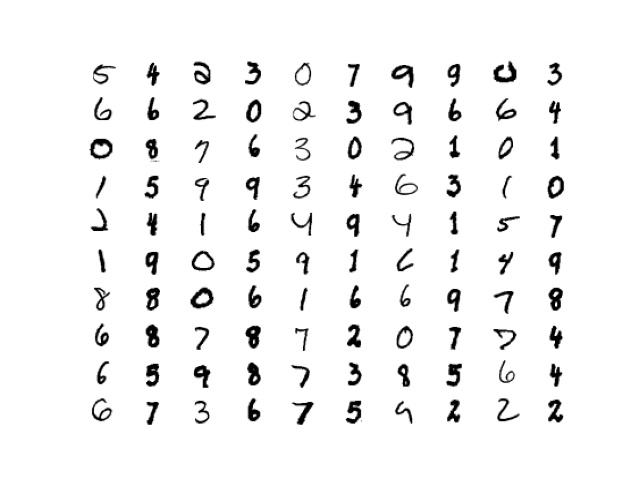 5 4 2 3 0 7 9 9 0 3
6 6 2 0 2 3 9 6 6 4
0 8 7 6 3 0 2 1 0 1
1 5 9 9 3 4 6 3 1 0
2 4 1 6 4 9 4 1 5 7
1 9 0 5 9 1 6 1 4 9
8 8 0 6 1 6 6 9 7 8
6 8 7 8 7 2 0 7 7 4
6 5 9 8 7 3 8 5 6 4
6 7 3 6 7 5 9 2 2 2